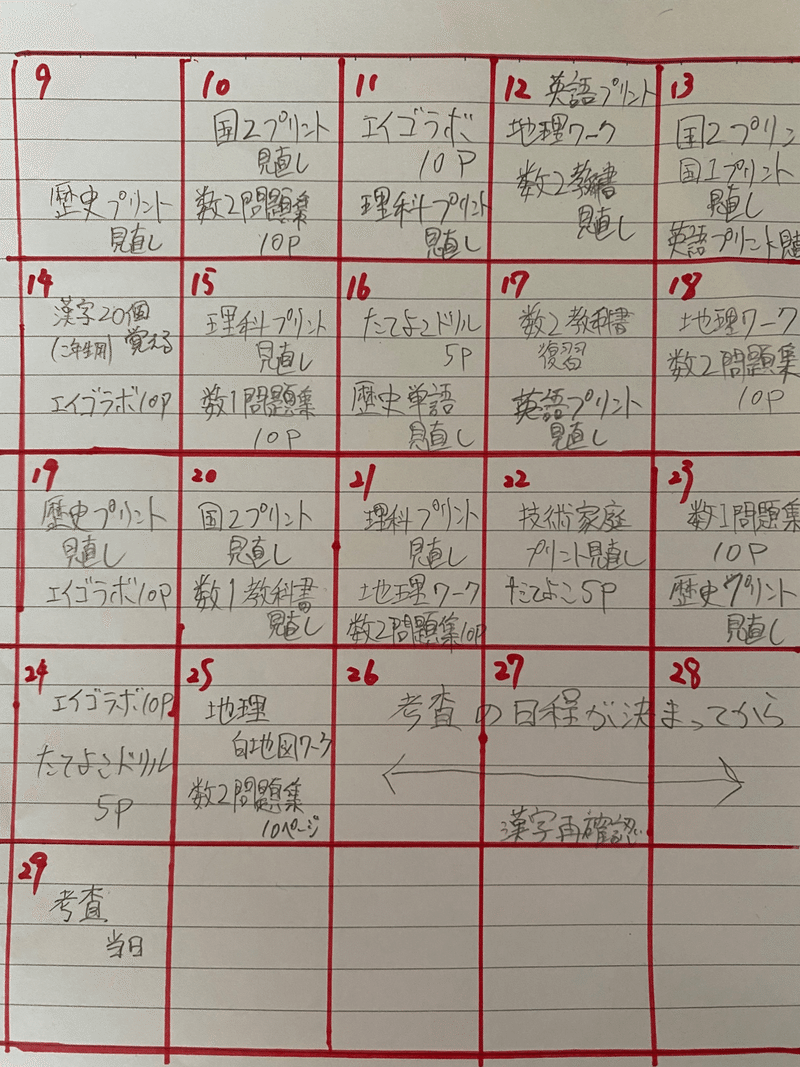 9
歴史プリント
見直し
10
国2プリント
見直し
数2問題集
10P
11
エイゴラボ
10P
理科プリント
見直し
12 英語プリント
地理ワーク
数2教科書
見直し
13
国2プリン
国1プリント
見直し
英語プリント見直
14
漢字20個
(二年生用) 覚える
エイゴラボ10P
15
理科プリント
見直し
数1問題集
10P
16
たてよこドリル
5P
歴史単語
見直し
17
数2教科書
復習
英語プリント
見直し
18
地理ワーク
数2問題集
10P
19
歴史プリント
見直し
エイゴラボ10P
20
国2プリント
見直し
数1教科書の
見直し
21
理科プリント
見直し
地理ワーク
数2問題集10P
22
技術家庭
プリント見直し
たてよこ5P
23
数1問題集
10P
歴史プリント
見直し
24
エイゴラボ10P
たてよこドリル
5P
25
地理
白地図ワーク
数2問題集
10ページ
26
27
28
考査の日程が決まってから
漢字再確認
29
考査
当日